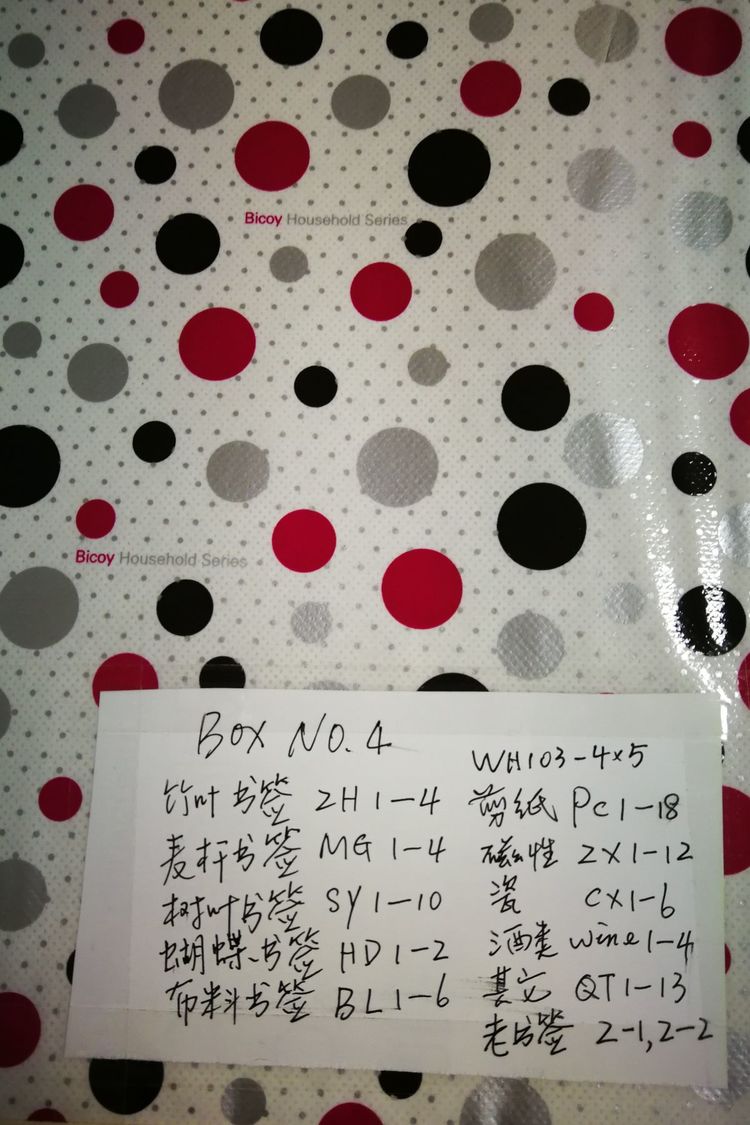 Bicoy Household Series
Bicoy Household Series
BOX NO.4
竹叶书签 ZH1-4
麦杆书签 MG1-4
树叶书签 SY1-10
蝴蝶书签 HD1-2
布料书签 BL1-6
WH103-4×5
剪纸 PC1-18
磁性 ZX1-12
瓷 CX1-6
酒类 wine1-4
其它 QT1-13
老书签 Z-1,Z-2